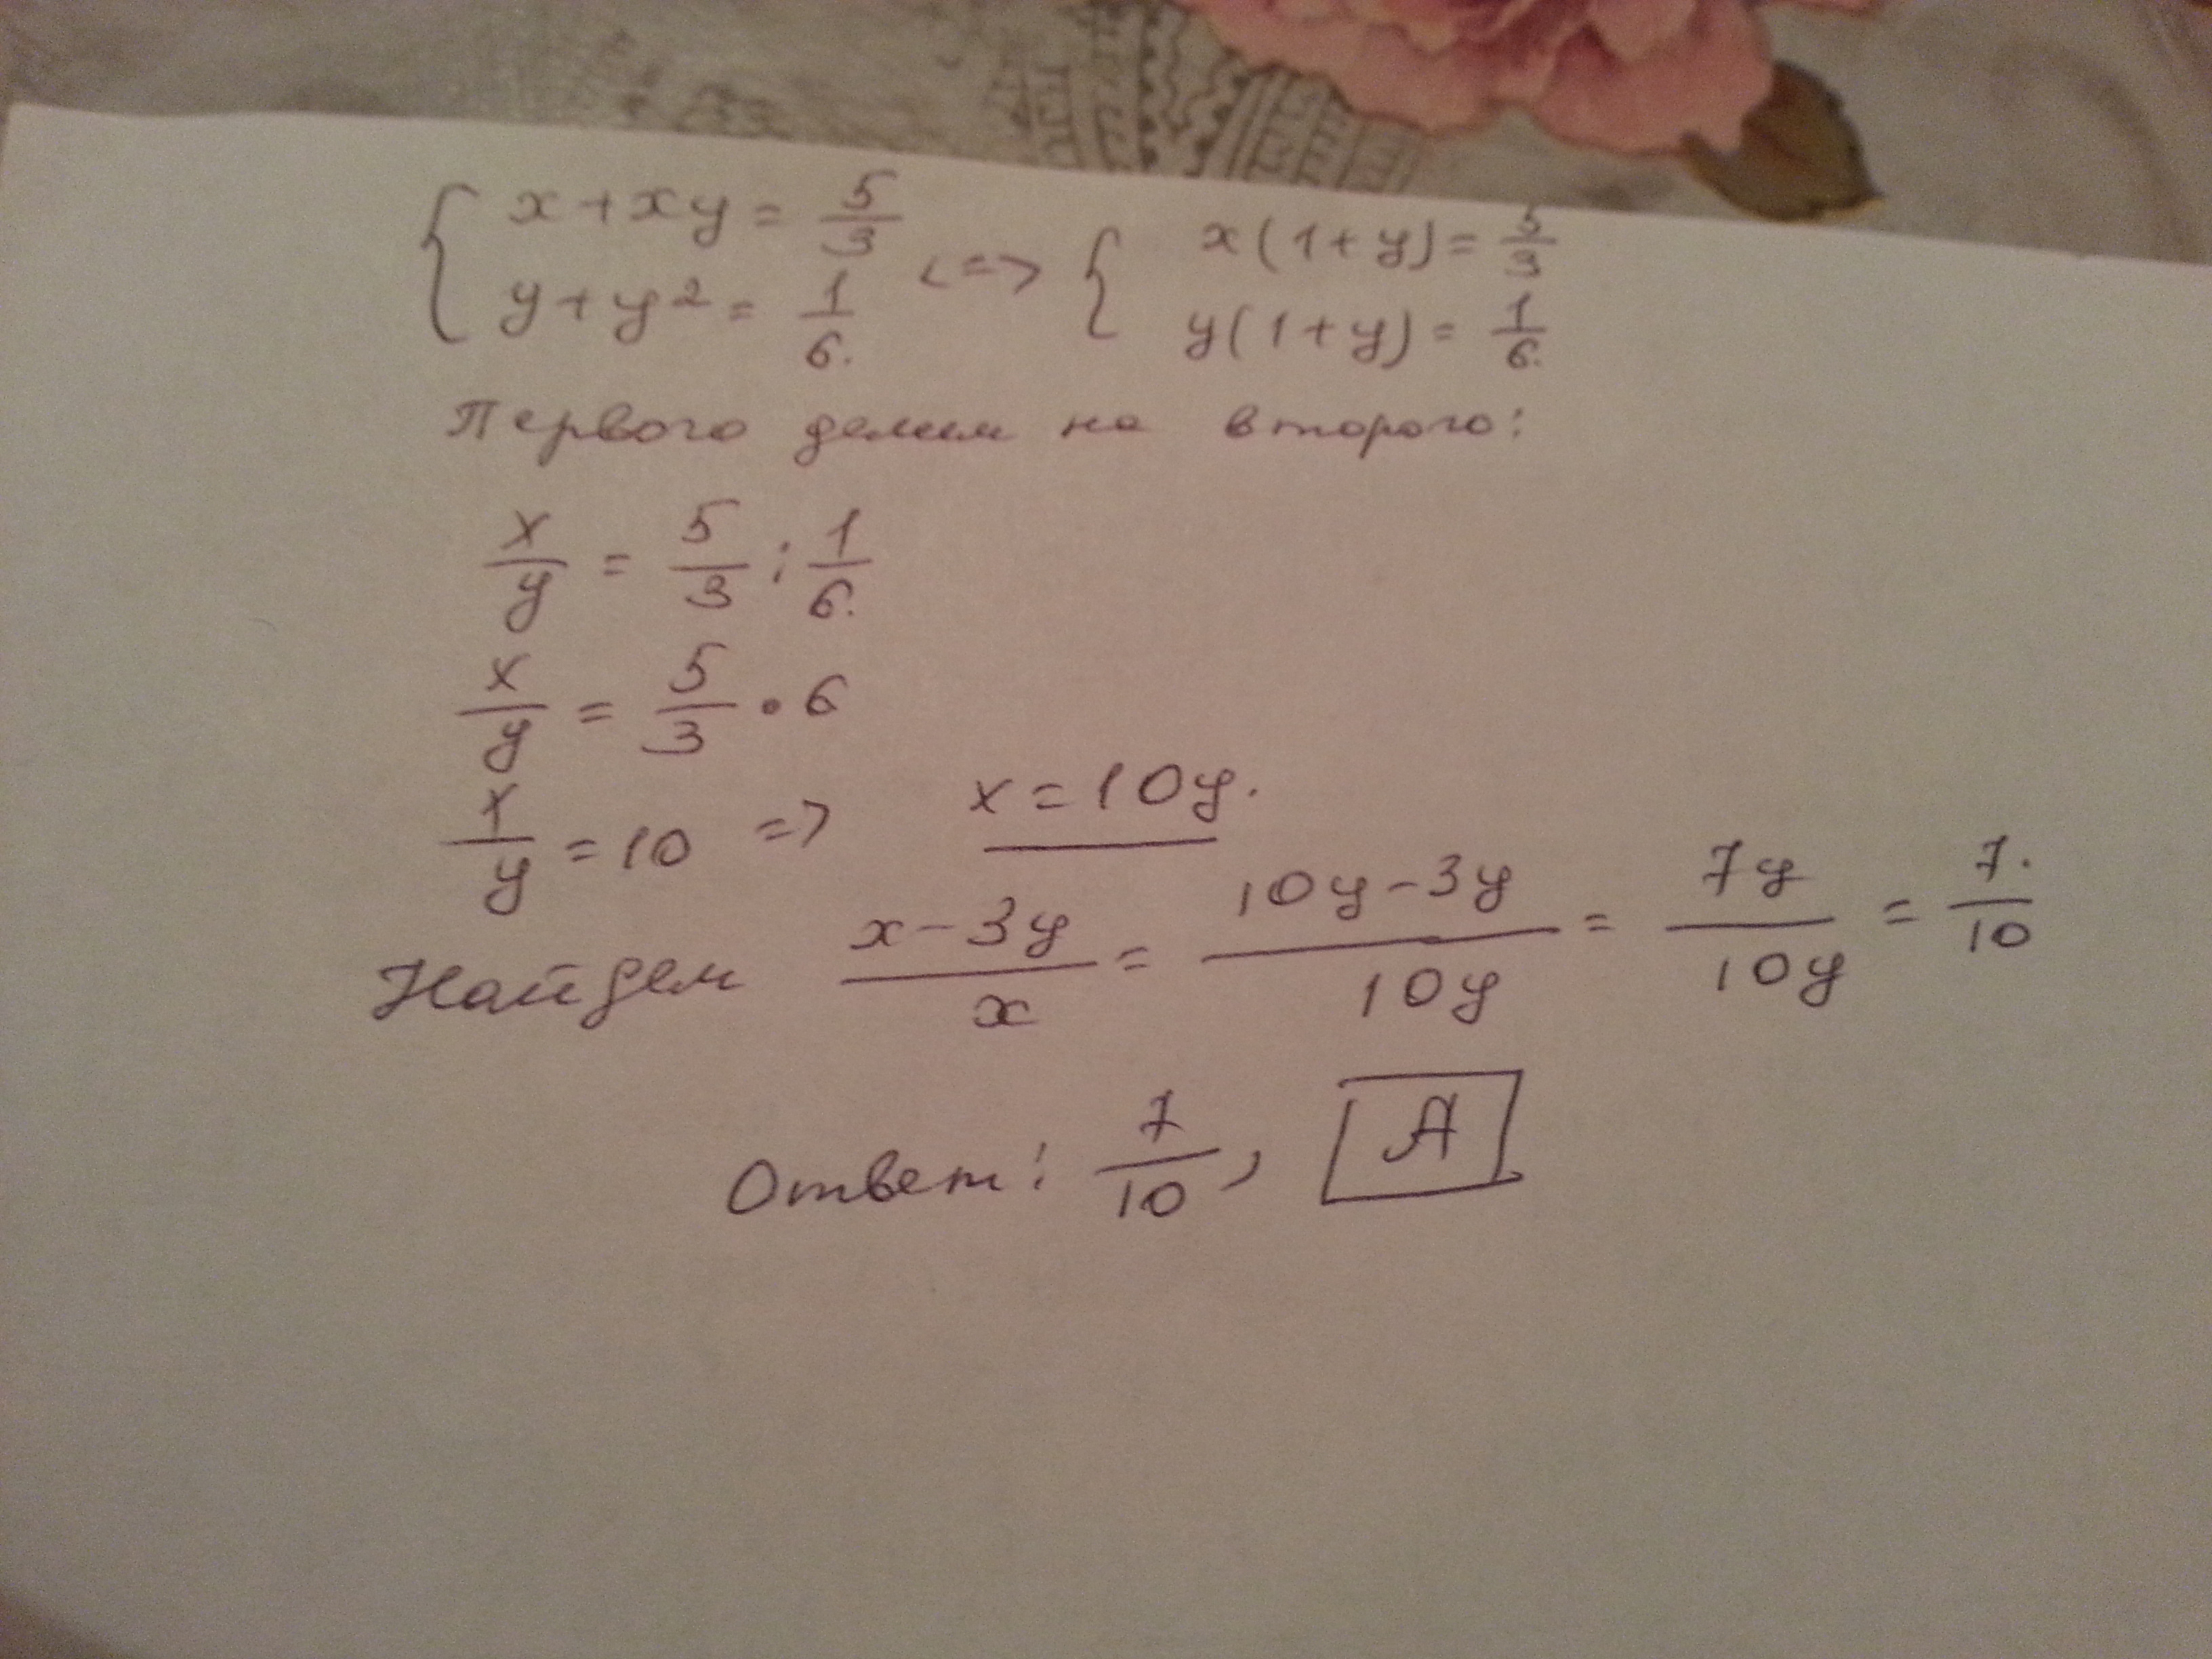 { x+xy = 5/3 <=> { x(1+y) = 5/3
y+y² = 1/6. y(1+y) = 1/6.
Первого делим на второго:
x/y = 5/3 : 1/6.
x/y = 5/3 • 6
x/y = 10 => x = 10y.
Найдем (x-3y)/x = (10y-3y)/10y = 7y/10y = 7/10.
Ответ: 7/10, A